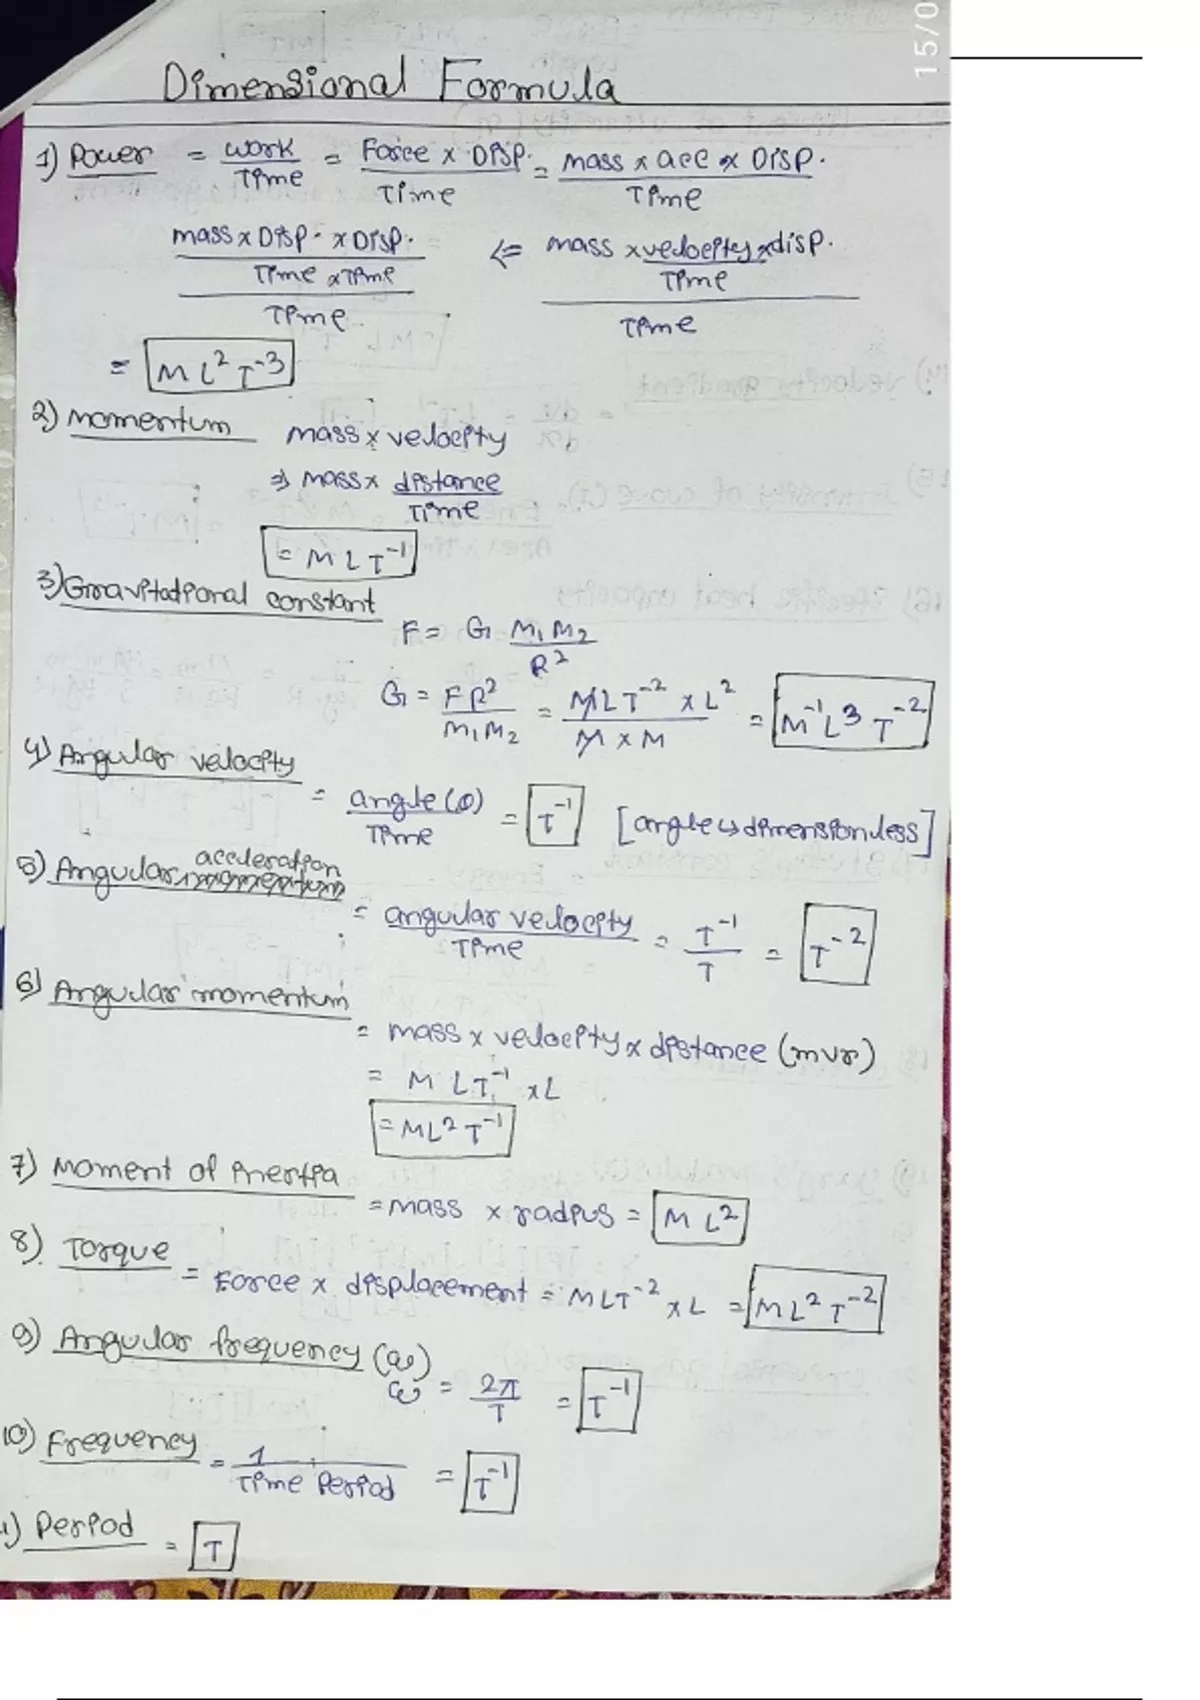 15/0
Dimensional Formula
1) Power = work/Time = Force x DISP./Time = mass x acc x DISP./Time
mass x Disp. x Disp./Time x Time/Time <= mass x velocity x disp./Time/Time
= M L² T⁻³
2) momentum mass x velocity
⇒ mass x distance/Time
= M L T⁻¹
3) Gravitational constant
F = G M₁ M₂/R²
G = F R²/M₁ M₂ = M L T⁻² x L²/M x M = M⁻¹ L³ T⁻²
4) Angular velocity
= angle (θ)/Time = T⁻¹ [angle ↳ dimensionless]
5) Angular acceleration
= angular velocity/Time = T⁻¹/T = T⁻²
6) Angular momentum
= mass x velocity x distance (mvr)
= M L T⁻¹ x L
= M L² T⁻¹
7) Moment of inertia
= mass x radius = M L²
8) Torque
= Force x displacement = M L T⁻² x L = M L² T⁻²
9) Angular frequency (ω)
ω = 2π/T = T⁻¹
10) Frequency = 1/Time Period = T⁻¹
1) Period = T